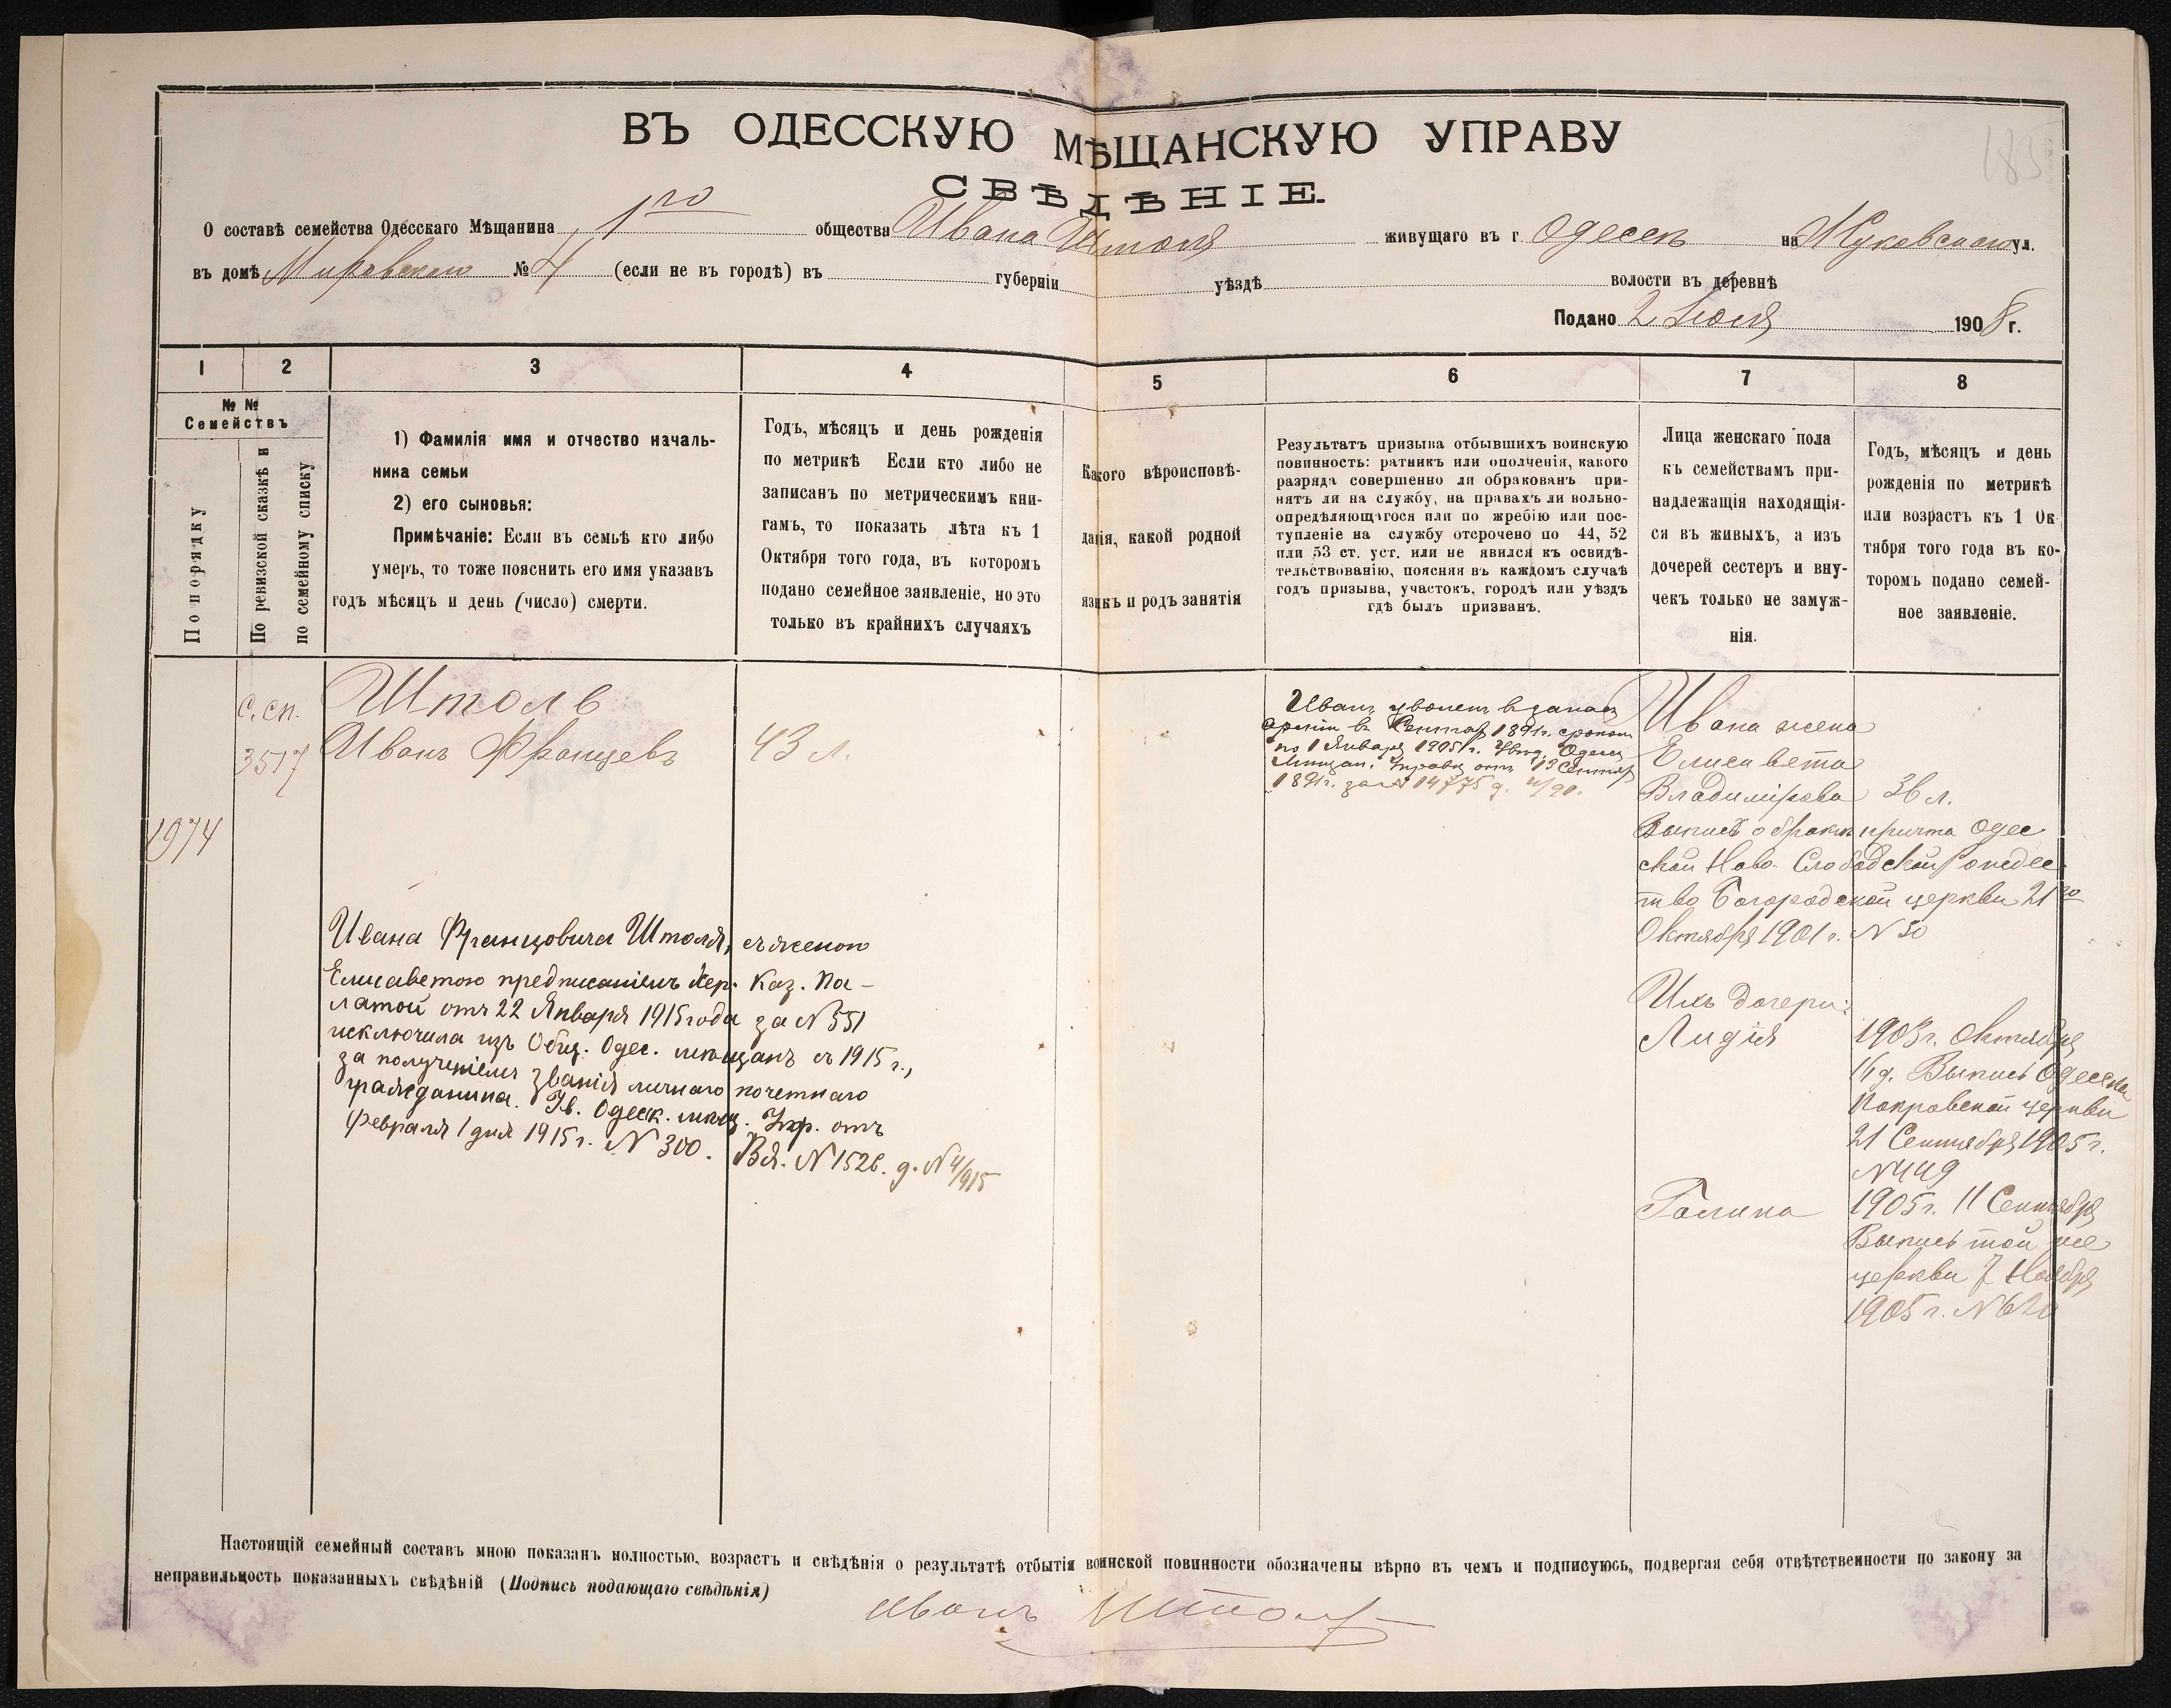 185
ВЪ ОДЕССКУЮ МѢЩАНСКУЮ УПРАВУ
СВѢДѢНІЕ.
О составѣ семейства Одесскаго Мѣщанина 1го общества Ивана Штоля живущаго въ г. Одессѣ на Жуковской ул.
въ домѣ № 4 (если не въ городѣ) въ губерніи уѣздѣ волости въ деревнѣ
Подано 2 Іюля 1908 г.
1 2 3 4 5 6 7 8
№ № Семействъ
По порядку
По ревизской сказкѣ и
по семейному списку
1) Фамилія имя и отчество началь-
ника семьи
2) его сыновья:
Примѣчаніе: Если въ семьѣ кто либо
умеръ, то тоже пояснить его имя указавъ
годъ мѣсяцъ и день (число) смерти.
Годъ, мѣсяцъ и день рожденія
по метрикѣ Если кто либо не
записанъ по метрическимъ кни-
гамъ, то показать лѣта къ 1
Октября того года, въ которомъ
подано семейное заявленіе, но это
только въ крайнихъ случаяхъ
Какого вѣроисповѣ-
данія, какой родной
языкъ и родъ занятія
Результатъ призыва отбывшихъ воинскую
повинность: ратникъ или ополченія, какого
разряда совершенно ли обракованъ при-
нятъ ли на службу, на правахъ ли вольно-
опредѣляющагося или по жребію или пос-
тупленіе на службу отсрочено по 44, 52
или 53 ст. уст. или не явился къ освидѣ-
тельствованію, поясняя въ каждомъ случаѣ
годъ призыва, участокъ, городѣ или уѣздъ
гдѣ былъ призванъ.
Лица женскаго пола
къ семействамъ при-
надлежащія находящія-
ся въ живыхъ, а изъ
дочерей сестеръ и вну-
чекъ только не замуж-
нія.
Годъ, мѣсяцъ и день
рожденія по метрикѣ
или возрастъ къ 1 Ок
тября того года въ ко-
торомъ подано семей-
ное заявленіе.
1974
с. сп.
3517
Штоль
Иванъ Францевъ
43 л.
Ивана Францовича Штоля, съ женою
Елисаветою предписаніемъ Хер. Каз. Па-
латой отъ 22 Января 1915 года за № 551
исключила изъ Общ. Одес. мѣщанъ съ 1915 г.,
за полученіемъ званія личнаго почетнаго
гражданина. Ув. Одеск. мѣщ. Упр. отъ
Февраля 1 дня 1915 г. № 300. Вх. № 1526. д. № 4/915
Иванъ уволенъ въ запасъ
арміи въ Сентяб 1891 г. срокомъ
по 1 Января 1905 г. Увѣд. Одесск
Мѣщан. Управы отъ 13 Сентяб
1891 г. за № 14775 д.
Ивана жена
Елисавета
Владимірова 36 л.
Выпись о бракѣ причта Одес
ской Ново-Слободской Рождес
тво Богородской церкви 21го
Октября 1901 г. № 50
Ихъ дочери:
Лидія
1903 г. Октября
16 д. Выпись Одесской
Покровской церкви
21 Сентября 1905 г.
№ 449
Галина
1905 г. 11 Сентября
Выпись той же
церкви 7 Ноября
1905 г. № 620
Настоящій семейный составъ мною показанъ полностью, возрастъ и свѣдѣнія о результатѣ отбытія воинской повинности обозначены вѣрно въ чемъ и подписуюсь, подвергая себя отвѣтственности по закону за
неправильность показанныхъ свѣдѣній (Подпись подающаго свѣдѣнія)
Иванъ Штоль